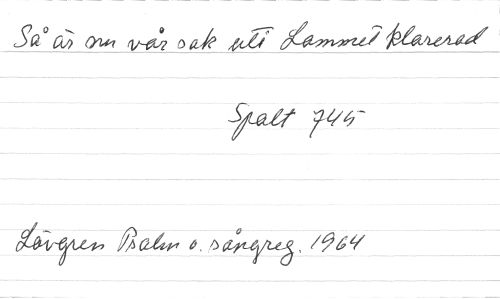 Så är nu vår sak uti Lammet klarerad
Spalt 745
Lövgren Psalm o. sångreg. 1964